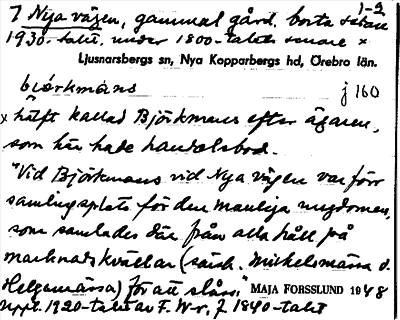 1-2
7 Nya vägen, gammal gård, borta sedan
1930-talet, under 1800-talets senare x
Ljusnarsbergs sn, Nya Kopparbergs hd, Örebro län.
bjørkmåns j 160
x hälft kallad Björkmans efter ägaren,
som här hade handelsbod.
"Vid Björkmans vid Nya vägen var förr
samlingsplats för den manliga ungdomen,
som samlades där från alla håll på
marknadskvällar (särsk. Mickelsmässa o.
Helgamässa) för att slåss." MAJA FORSSLUND 1948
Uppt. 1920-talet av F. W-r, f. 1840-talet